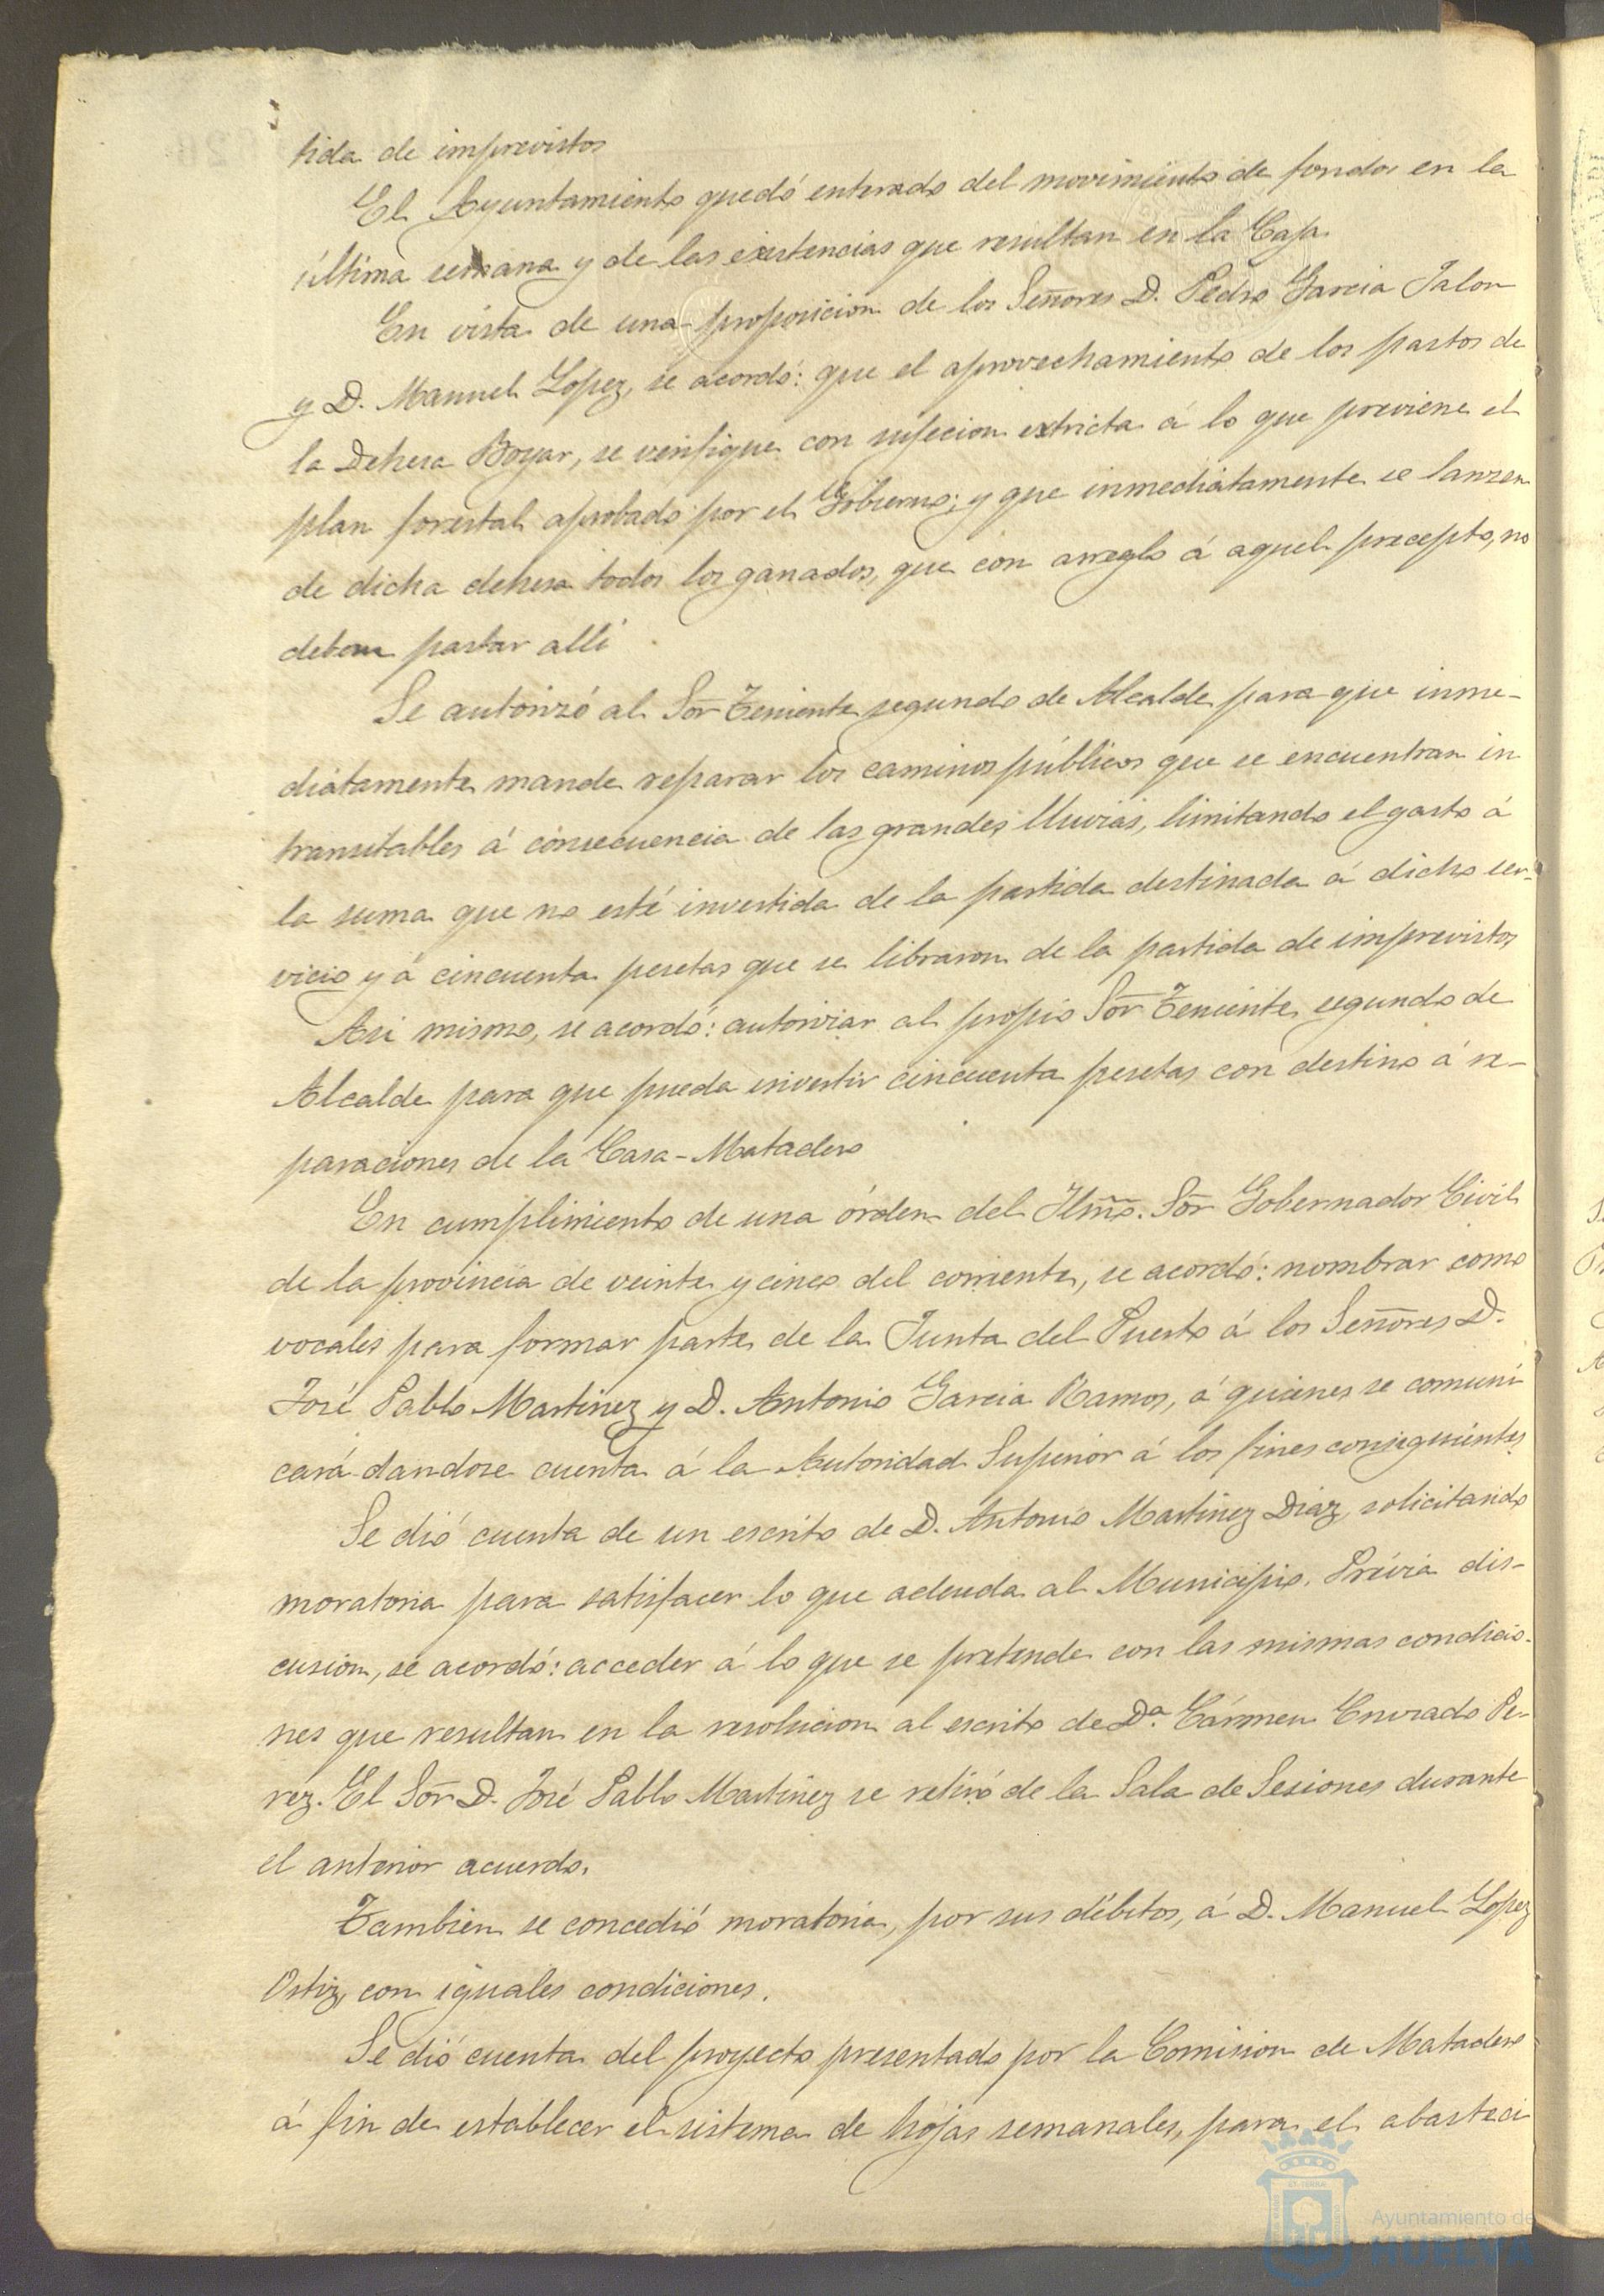 tida de imprevistos
El Ayuntamiento quedó enterado del movimiento de fondos en la
última semana y de las existencias que resultan en la Caja.
En vista de una proposicion de los Señores D. Pedro Garcia Jalon
y D. Manuel Lopez, se acordó: que el aprovechamiento de los pastos de
la Dehesa Boyar, se verifique con sujecion extricta á lo que previene el
plan forestal aprobado por el Gobierno; y que inmediatamente se lanzen
de dicha dehesa todos los ganados, que con arreglo á aquel precepto, no
deben pastar allí
Se autorizó al Sor Teniente segundo de Alcalde para que inme-
diatamente mande reparar los caminos públicos que se encuentran in
transitables á consecuencia de las grandes lluvias, limitando el gasto á
la suma que no esté invertida de la partida destinada á dicho ser-
vicio y á cincuenta pesetas que se libraron de la partida de imprevistos
Asi mismo, se acordó: autorizar al propio Sor Teniente segundo de
Alcalde para que pueda invertir cincuenta pesetas con destino á re-
paraciones de la Casa-Matadero
En cumplimiento de una órden del Ilmo. Sor Gobernador Civil
de la provincia de veinte y cinco del corriente, se acordó: nombrar como
vocales para formar parte de la Junta del Puerto á los Señores D.
José Pablo Martinez y D. Antonio Garcia Ramos, á quienes se comuni
cará dandose cuenta á la Autoridad Superior á los fines consiguientes
Se dió cuenta de un escrito de D. Antonio Martinez Diaz, solicitando
moratoria para satisfacer lo que adeuda al Municipio. Prévia dis-
cusion, se acordó: acceder á lo que se pretende con las mismas condicio-
nes que resultan en la resolucion al escrito de Da. Cármen Envrado Pe-
rez. El Sor D. José Pablo Martinez se retiró de la Sala de Sesiones durante
el anterior acuerdo.
Tambien se concedió moratoria, por sus débitos, á D. Manuel Lopez
Ortiz, con iguales condiciones.
Se dió cuenta del proyecto presentado por la Comision de Matadero
á fin de establecer el sistema de hojas semanales, para el abasteci
Ayuntamiento de
HUELVA